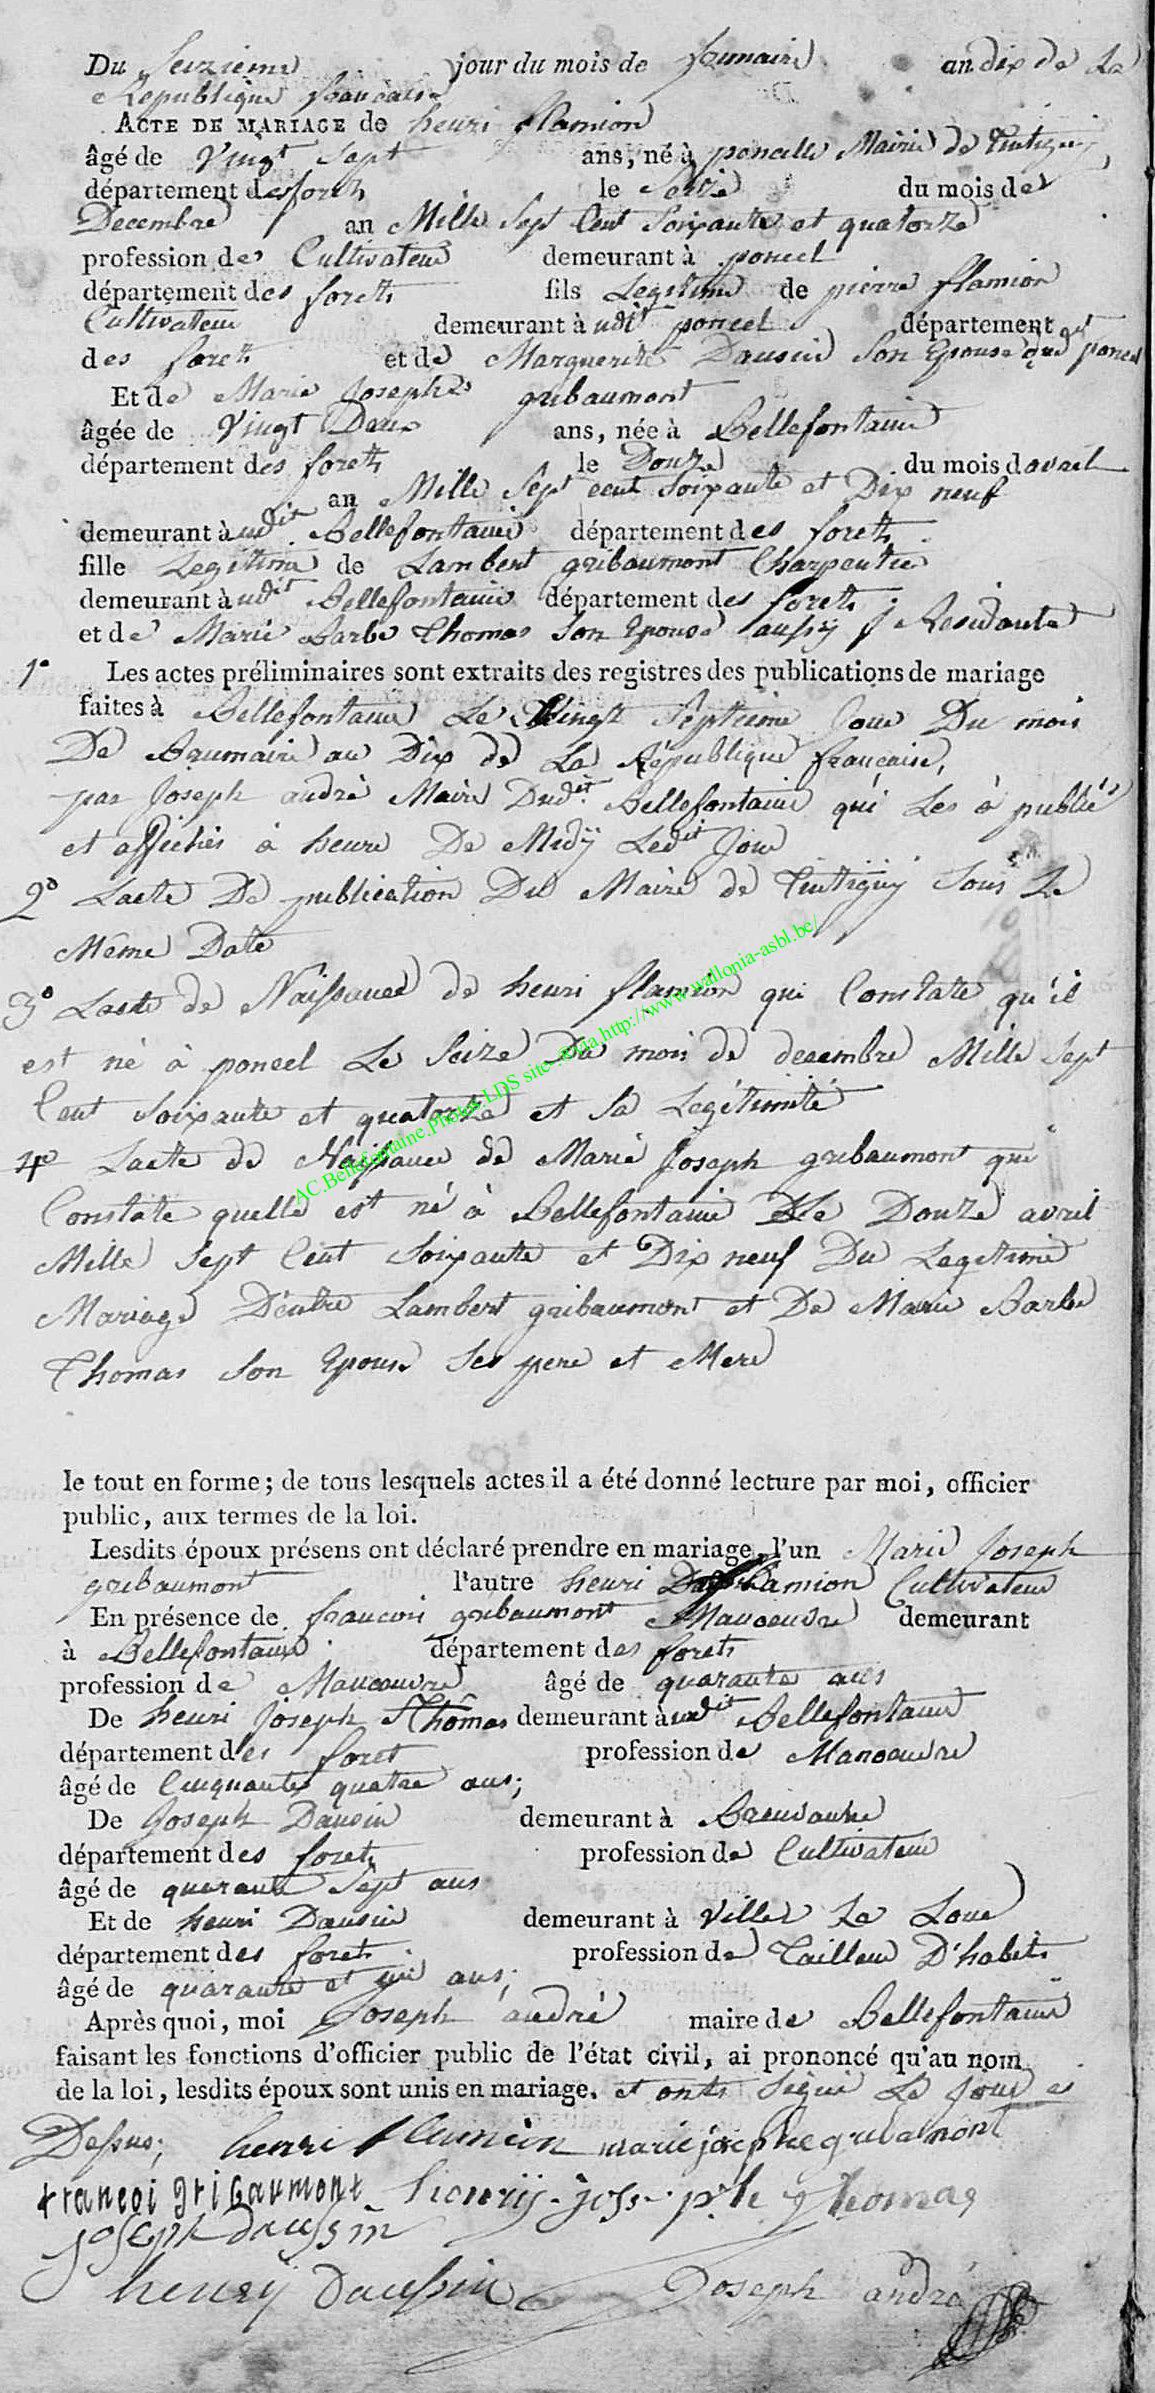 Du Seizieme jour du mois de frimaire an dix de La
Republique francaise
ACTE DE MARIAGE de henri flamion
âgé de Vingt Sept ans, né à poncelle Mairie de Tintigny,
département des forets le Seize du mois de
Decembre an Mille Sept Cent Soixante et quatorze
profession de Cultivateur demeurant à poncel
département des forets fils Legitime de pierre flamion
Cultivateur demeurant à udit poncel département
des forets et de Marguerite Dausin Son Epouse poncel
Et de Marie Joseph gribaumont
âgée de Vingt Deux ans, née à Bellefontaine
département des forets le Douze du mois davril
an Mille Sept cent Soixante et Dix neuf
demeurant à udit Bellefontaine département des forets
fille Legitime de Lambert gribaumont Charpentier
demeurant à udit Bellefontaine département des forets
et de Marie Barbe Thomas Son Epouse aussy y Residante
1° Les actes préliminaires sont extraits des registres des publications de mariage
faites à Bellefontaine Le Vingt Septieme Jour Du mois
De Brumaire an Dix de La République francaise,
par Joseph andré Maire Dudit Bellefontaine qui Les à publiés
et affichés à heure De Midÿ Ledit Jour
2° Lacte De publication Du Maire de Tintigny Sous La
Même Date
3° Lacte de Naissance de henri flamion qui Constate qu'il
est né à poncel Le Seize Du mois de decembre Mille Sept
Cent Soixante et quatorze et Sa Legétimité
4° Lacte de Naissance de Marie Joseph gribaumont qui
Constate quelle est né à Bellefontaine Le Douze avril
Mille Sept Cent Soixante et Dix neuf Du Legitime
Mariage D'entre Lambert gribaumont et De Marie Barbe
Thomas Son Epouse Ses pere et Mere
AC.Bellefontaine.Photos.LDS site-.©via.http://www.wallonia-asbl.be/
le tout en forme; de tous lesquels actes il a été donné lecture par moi, officier
public, aux termes de la loi.
Lesdits époux présens ont déclaré prendre en mariage, l'un Marie Joseph
gribaumont l'autre henri flamion Cultivateur
En présence de francois gribaumont Manoeuvre demeurant
à Bellefontaine département des forets
profession de Manoeuvre âgé de quarante ans
De henri Joseph Thômas demeurant à udit Bellefontaine
département des foret profession de Manoeuvre
âgé de Cinquante quatre ans;
De Joseph Dausin demeurant à Breuvanne
département des forets profession de Cultivateur
âgé de quarante Sept ans
Et de henri Dausin demeurant à Viller La Loue
département des forets profession de Tailleur D'habits
âgé de quarante et un ans;
Après quoi, moi Joseph andré maire de Bellefontaine
faisant les fonctions d'officier public de l'état civil, ai prononcé qu'au nom
de la loi, lesdits époux sont unis en mariage. et onts Signé Le Jour et
Dessus; henri flamion marie josephe gribamont
francoi gribaumont henrij joseph thomas
joseph daussin
henrÿ Daussin Joseph andré